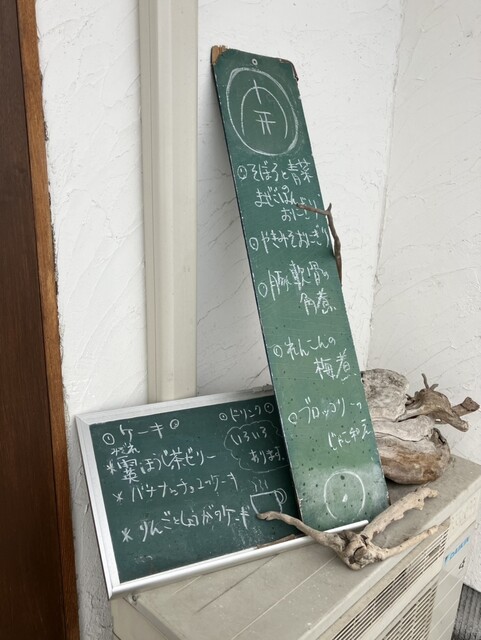 ◎そぼろと青菜の
まぜごはん
おにぎり
◎やきみそおにぎり
◎豚軟骨の
角煮
◎れんこんの
梅煮
◎ブロッコリーの
じゃこ和え
◎ケーキ◎
みぞれ
*霙ほうじ茶ゼリー
*バナナとチョコのケーキ
*りんごとしょうがのケーキ
◎ドリンク◎
いろいろ
あります。
DAIKIN